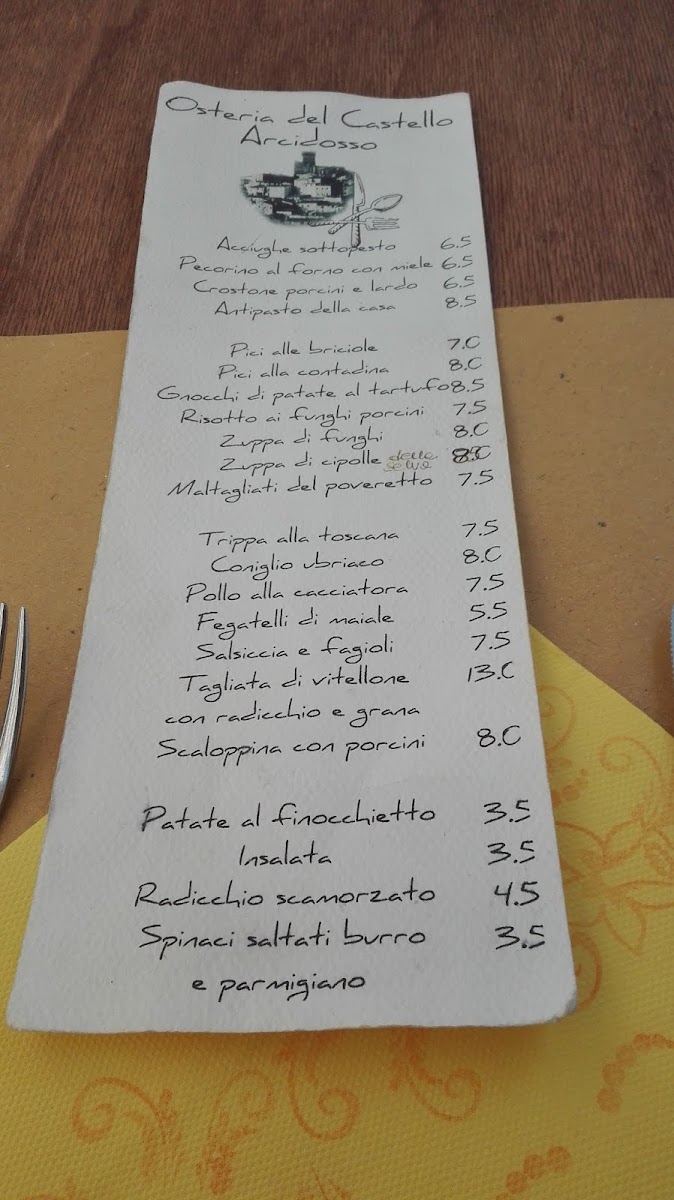 Osteria del Castello
Arcidosso
Acciughe sottopesto 6.5
Pecorino al forno con miele 6.5
Crostone porcini e lardo 6.5
Antipasto della casa 8.5
Pici alle briciole 7.0
Pici alla contadina 8.0
Gnocchi di patate al tartufo 8.5
Risotto ai funghi porcini 7.5
Zuppa di funghi 8.0
Zuppa di cipolle della selva
Maltagliati del poveretto 7.5
Trippa alla toscana 7.5
Coniglio ubriaco 8.0
Pollo alla cacciatora 7.5
Fegatelli di maiale 5.5
Salsiccia e fagioli 7.5
Tagliata di vitellone 13.0
con radicchio e grana
Scaloppina con porcini 8.0
Patate al finocchietto 3.5
Insalata 3.5
Radicchio scamorzato 4.5
Spinaci saltati burro 3.5
e parmigiano